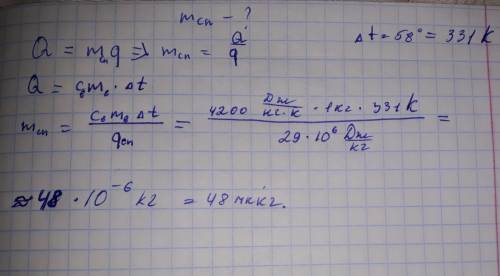 mсп - ?
Q = mц q => mсп = Q/q
Δt = 58° = 331 K
Q = cв mв · Δt
mсп = cв mв Δt / qсп = 4200 Дж/кг·К · 1кг · 331 K / 29 · 10⁶ Дж/кг =
≈ 48 · 10⁻⁶ кг = 48 мккг.